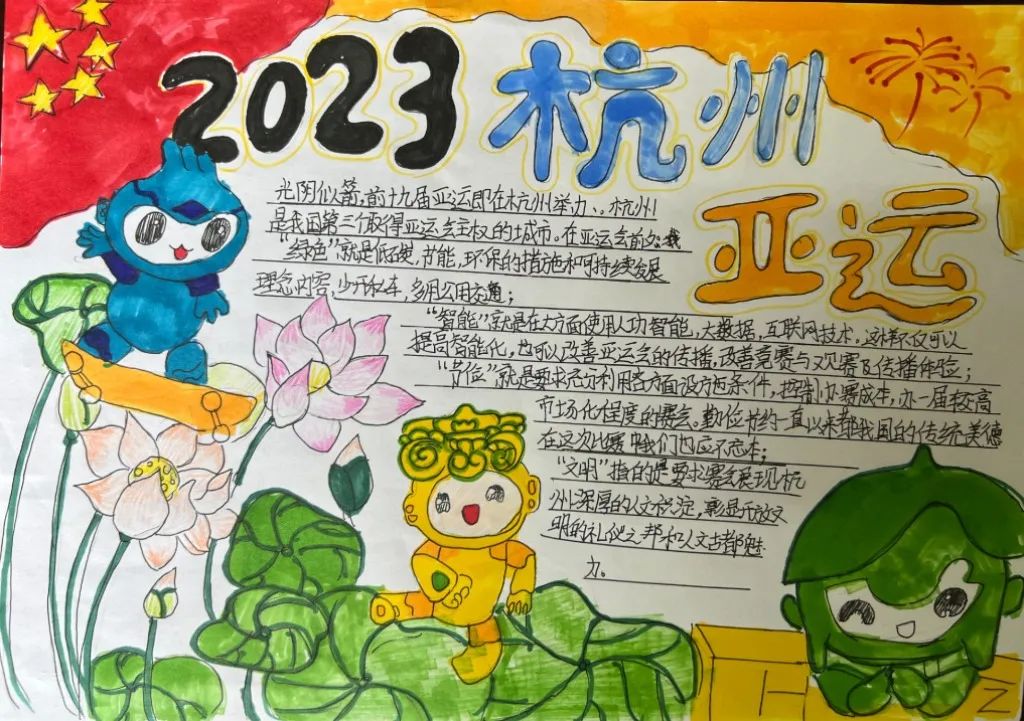 2023杭州
亚运
光阴似箭,前十九届亚运即在杭州举办、杭州
是我国第三个取得亚运会主权的城市。在亚运会前夕
“绿色”就是低碳,节能,环保的措施和可持续发展
理念内容,少开私车,多用公用交通;
“智能”就是在大方面使用人功智能,大数据,互联网技术,这样不仅可以
提高智能化,也可以改善亚运会的传播,改善竞赛与观赛及传播体验;
“节俭”就是要求充分利用各方面设施条件,控制办赛成本,办一届较高
市场化程度的赛会。勤俭节约一直以来都我国的传统美德
在这次比赛中我们也应不忘本;
“文明”指的是要求赛会展现杭
州深厚的人文积淀,彰显开放文
明的礼仪之邦和人文古都魅
力。